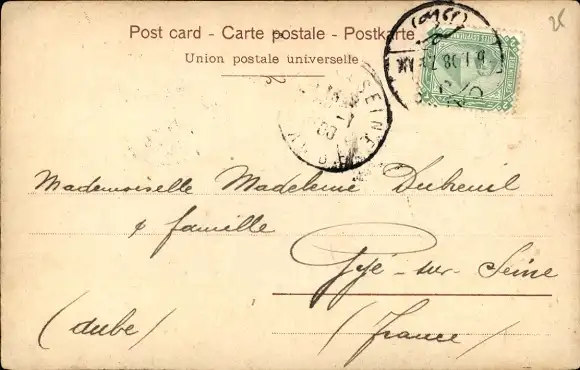 Post card - Carte postale - Postkarte
Union postale universelle
25
6 I 08
SEINE
Mademoiselle Madeleine Dubreuil
& famille
Gyé-sur-Seine
(Aube) (France)